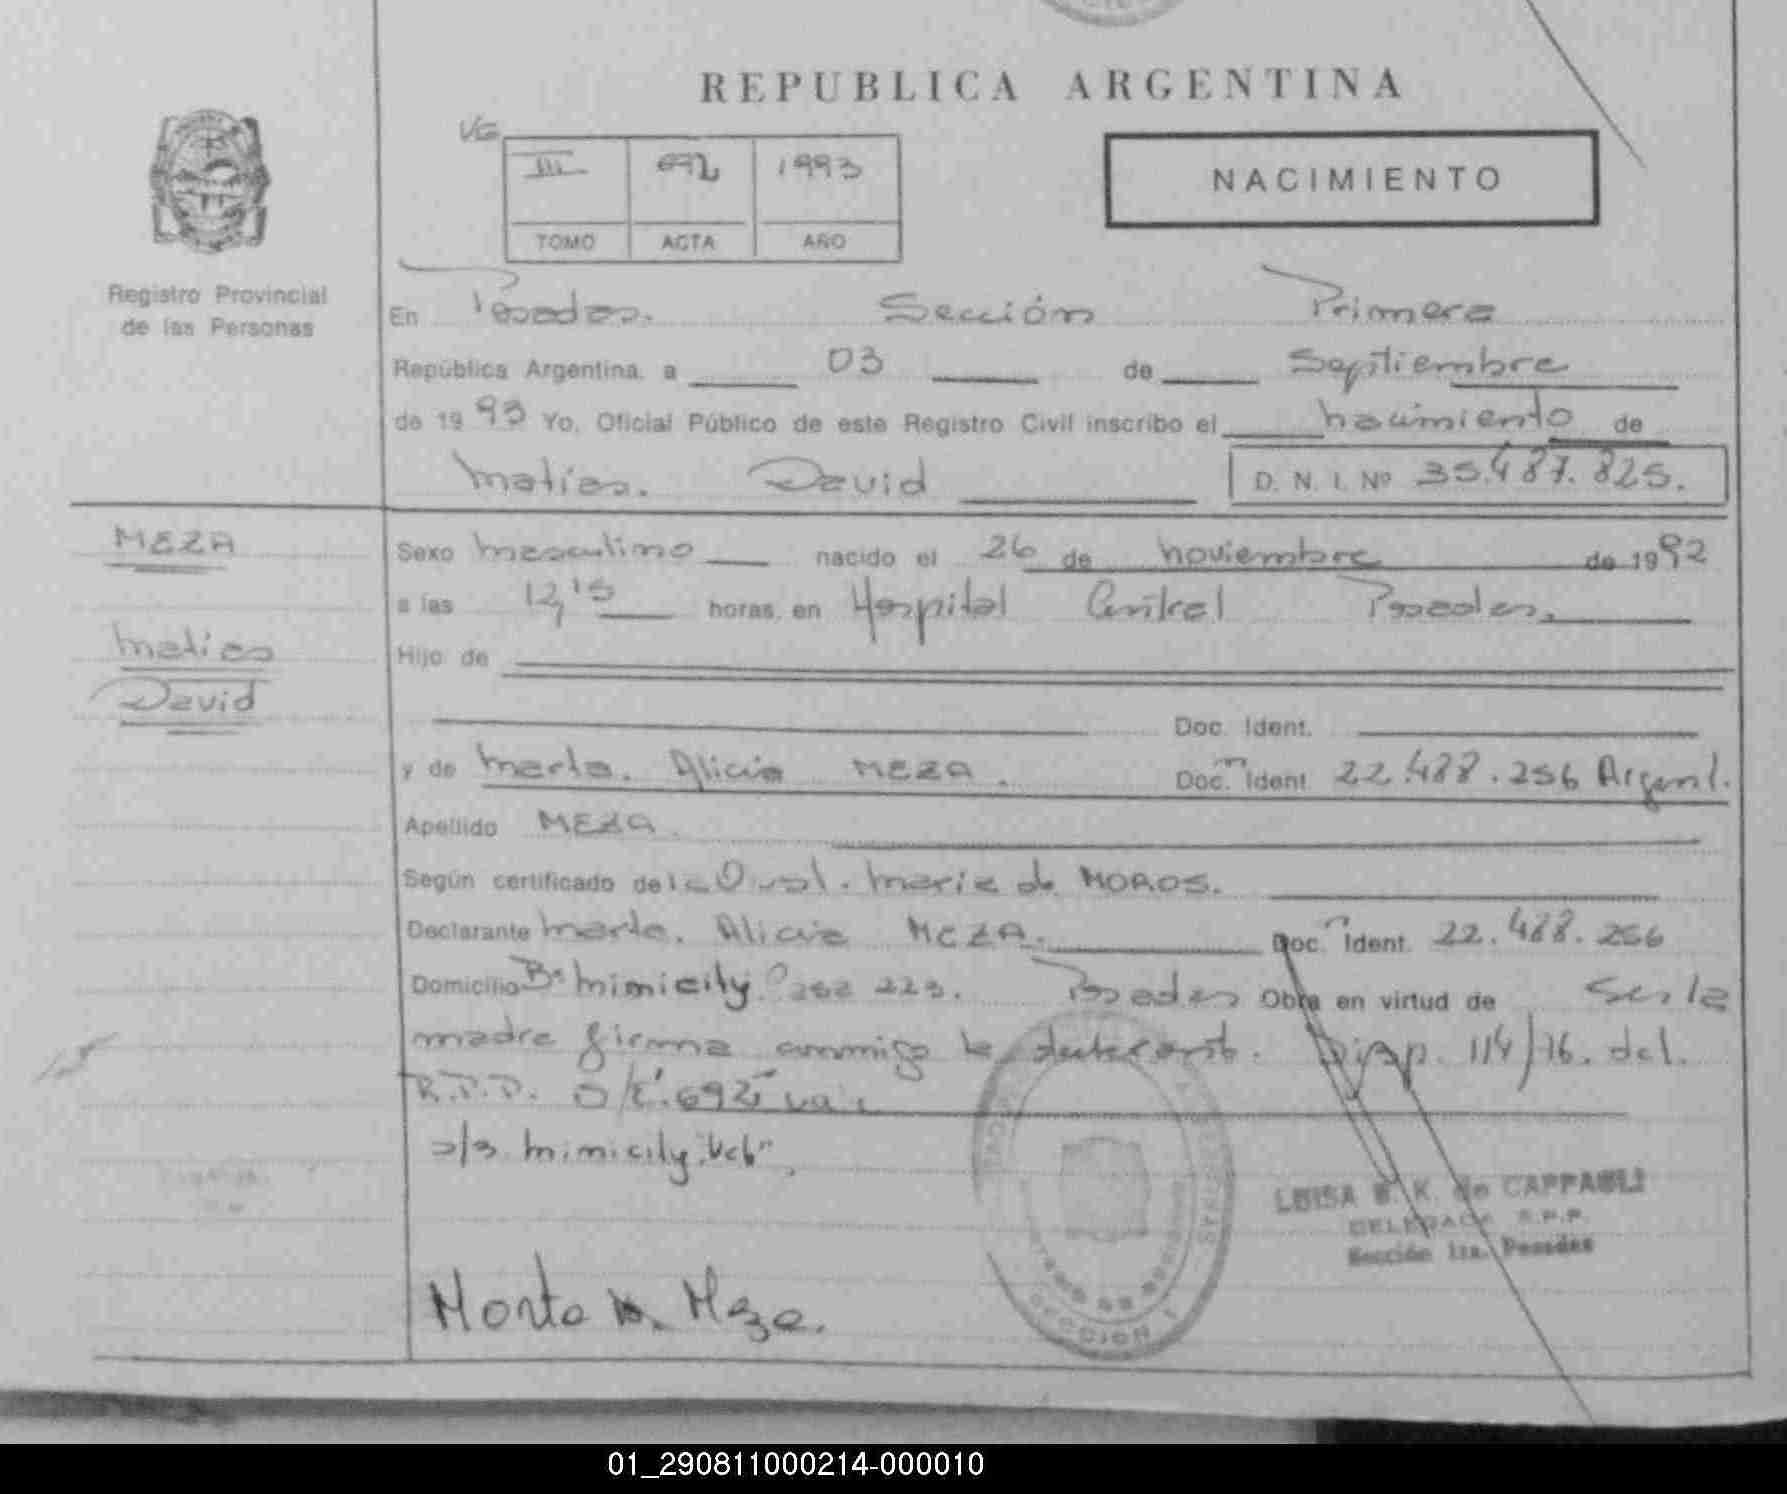 REPUBLICA ARGENTINA
VG
III 692 1993
TOMO ACTA AÑO
NACIMIENTO
Registro Provincial
de las Personas
En Posadas. Sección Primera
República Argentina, a 03 de Septiembre
de 1993 Yo, Oficial Público de este Registro Civil inscribo el nacimiento de
Matías. David D. N. I. Nº 35.487.825.
MEZA
Matías
David
Sexo masculino nacido el 26 de noviembre de 1992
a las 12,15 horas, en Hospital Central Posadas.
Hijo de
Doc. Ident.
y de Marta. Alicia MEZA. Doc. Ident. 22.488.256 Argent.
Apellido MEZA.
Según certificado de la Maria de MOROS.
Declarante Marta. Alicia MEZA. Doc. Ident. 22.488.256
Domicilio Bº Minicity 223. Posadas Obra en virtud de Ser la
madre firma conmigo Disp. 114/76. del.
R.P.P. 692 va.
s/r. minicity. Vcb".
LUISA B. K. de CAPPAULI
DELEGADA R.P.P.
Sección 1ra. Posadas
SECCION 1
Marta A. Meza.
01_290811000214-000010